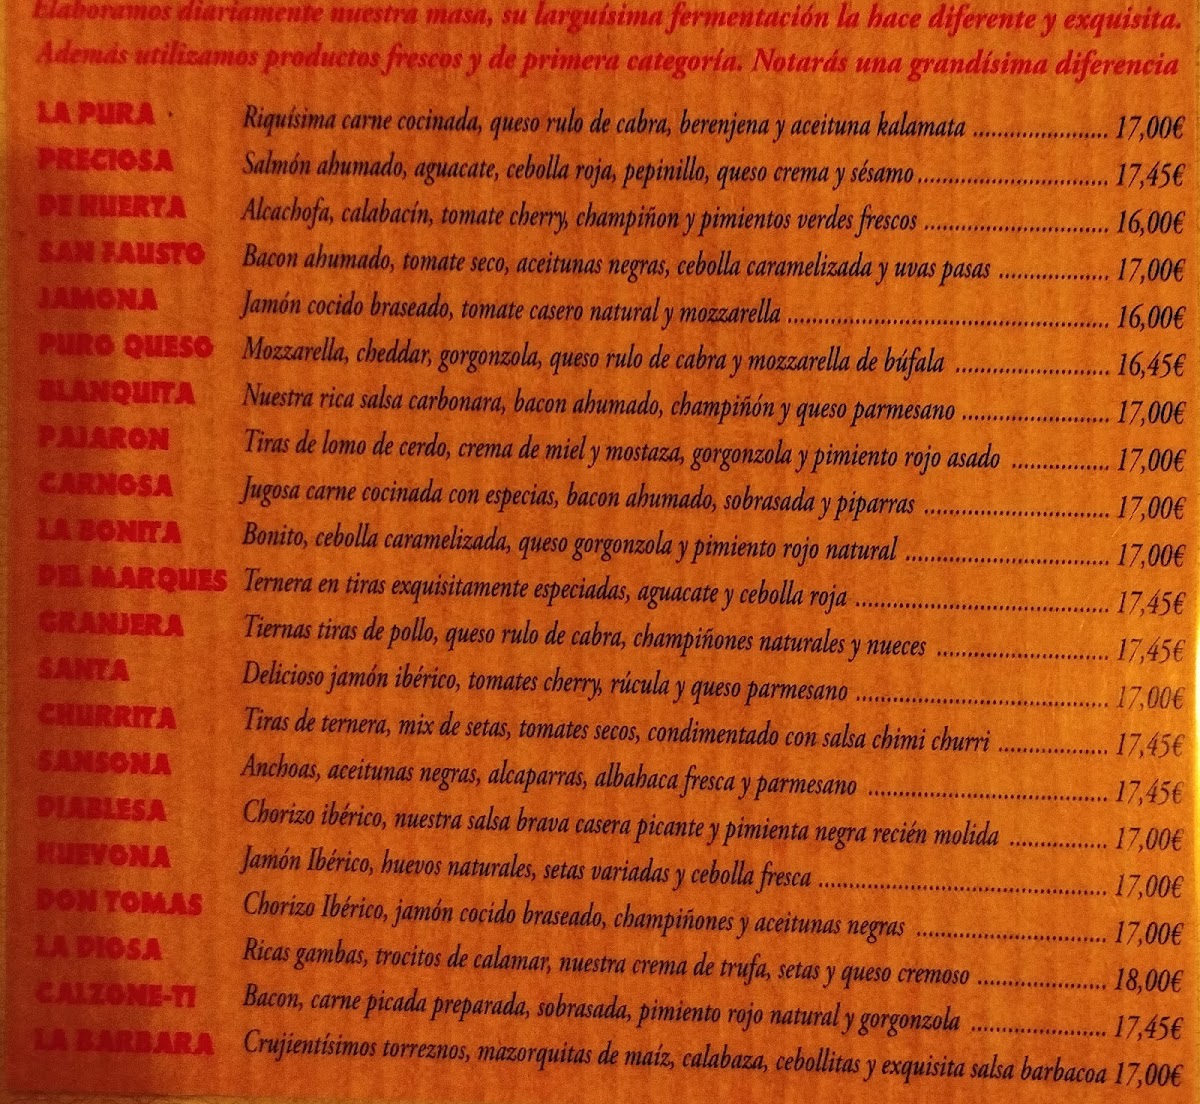 Elaboramos diariamente nuestra masa, su larguísima fermentación la hace diferente y exquisita.
Además utilizamos productos frescos y de primera categoría. Notarás una grandísima diferencia
LA PURA Riquísima carne cocinada, queso rulo de cabra, berenjena y aceituna kalamata ....................... 17,00€
PRECIOSA Salmón ahumado, aguacate, cebolla roja, pepinillo, queso crema y sésamo ................................. 17,45€
DE HUERTA Alcachofa, calabacín, tomate cherry, champiñon y pimientos verdes frescos ................................ 16,00€
SAN FAUSTO Bacon ahumado, tomate seco, aceitunas negras, cebolla caramelizada y uvas pasas ................... 17,00€
JAMONA Jamón cocido braseado, tomate casero natural y mozzarella ....................................................... 16,00€
PURO QUESO Mozzarella, cheddar, gorgonzola, queso rulo de cabra y mozzarella de búfala .......................... 16,45€
BLANQUITA Nuestra rica salsa carbonara, bacon ahumado, champiñón y queso parmesano ......................... 17,00€
PAJARON Tiras de lomo de cerdo, crema de miel y mostaza, gorgonzola y pimiento rojo asado ................. 17,00€
CARNOSA Jugosa carne cocinada con especias, bacon ahumado, sobrasada y piparras ................................ 17,00€
LA BONITA Bonito, cebolla caramelizada, queso gorgonzola y pimiento rojo natural ................................... 17,00€
DEL MARQUES Ternera en tiras exquisitamente especiadas, aguacate y cebolla roja ........................................... 17,45€
GRANJERA Tiernas tiras de pollo, queso rulo de cabra, champiñones naturales y nueces ............................. 17,45€
SANTA Delicioso jamón ibérico, tomates cherry, rúcula y queso parmesano ........................................... 17,00€
CHURRITA Tiras de ternera, mix de setas, tomates secos, condimentado con salsa chimi churri ................... 17,45€
SANSONA Anchoas, aceitunas negras, alcaparras, albahaca fresca y parmesano ......................................... 17,45€
DIABLESA Chorizo ibérico, nuestra salsa brava casera picante y pimienta negra recién molida ................. 17,00€
HUEVONA Jamón Ibérico, huevos naturales, setas variadas y cebolla fresca ................................................. 17,00€
DON TOMAS Chorizo Ibérico, jamón cocido braseado, champiñones y aceitunas negras ................................. 17,00€
LA DIOSA Ricas gambas, trocitos de calamar, nuestra crema de trufa, setas y queso cremoso ...................... 18,00€
CALZONE-TI Bacon, carne picada preparada, sobrasada, pimiento rojo natural y gorgonzola ....................... 17,45€
LA BARBARA Crujientísimos torreznos, mazorquitas de maíz, calabaza, cebollitas y exquisita salsa barbacoa 17,00€